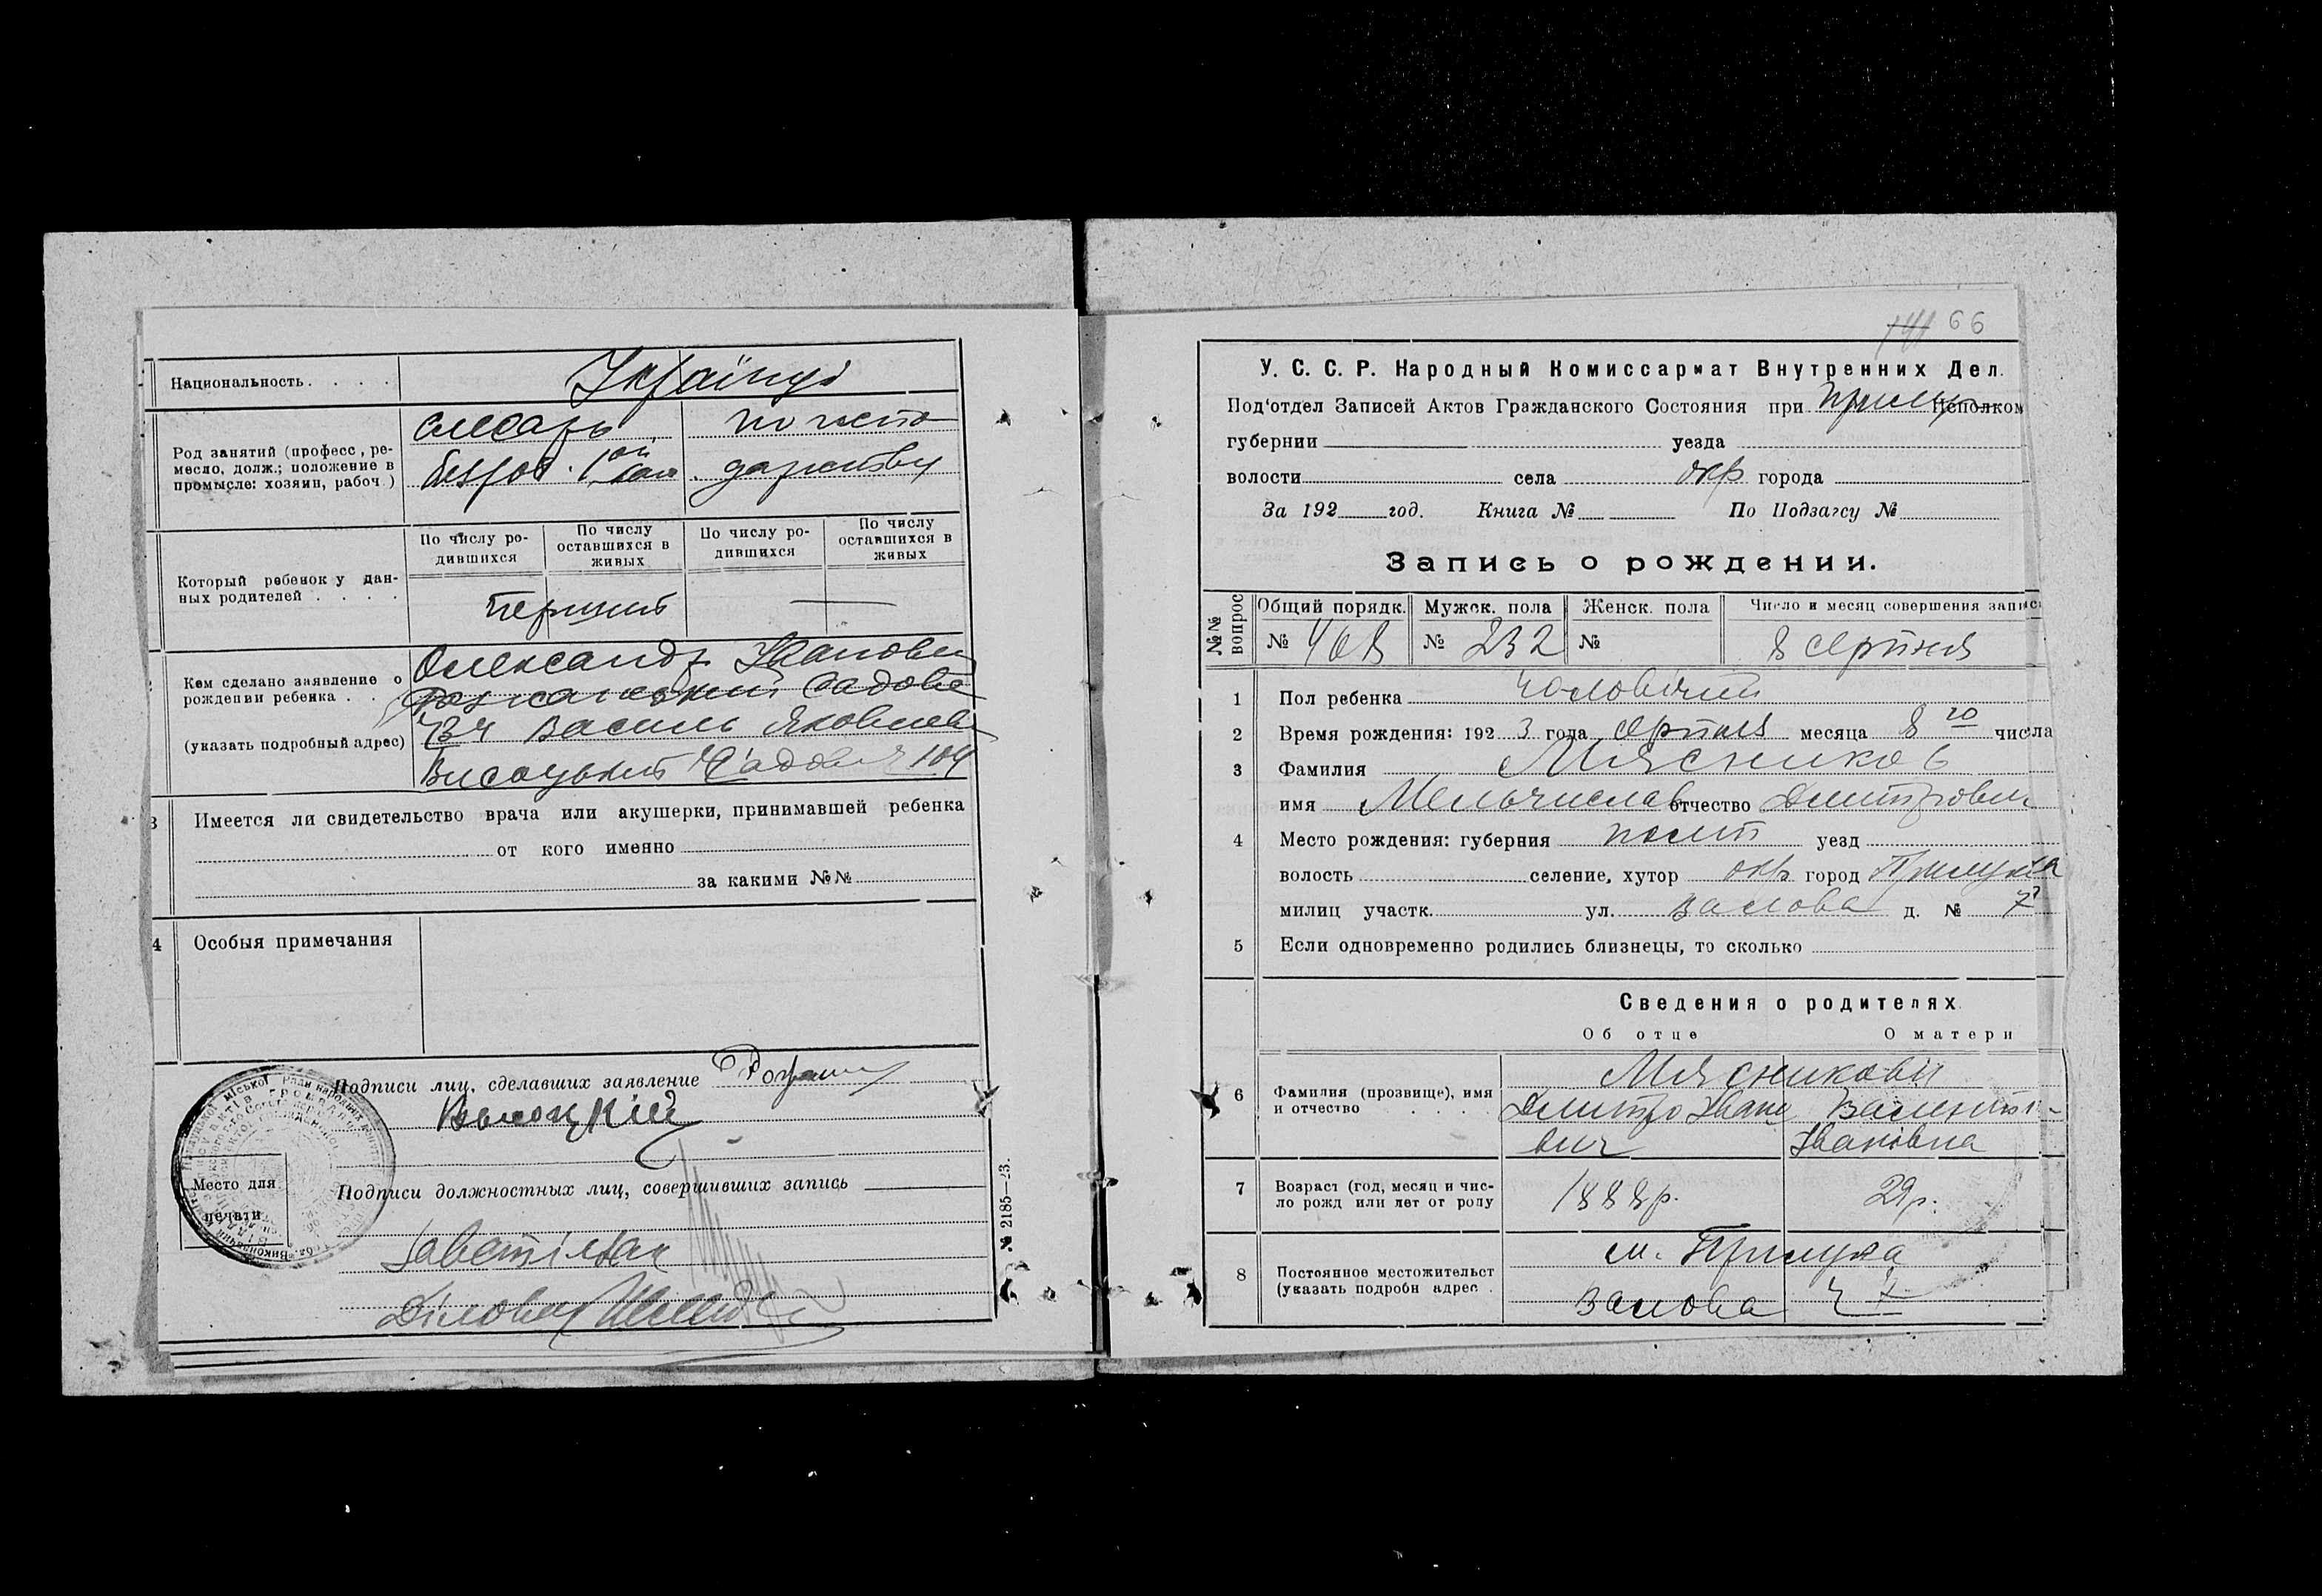 Национальность. . . . Українці
Род занятий (професс, ре-
месло, долж.; положение в
промысле: хозяин, рабоч.)
слесарь
по госпо
дарству
Который ребенок у дан-
ных родителей . . . .
По числу ро-
дившихся
По числу
оставшихся в
живых
По числу ро-
дившихся
По числу
оставшихся в
живых
перший
Кем сделано заявление о
рождении ребенка . .
(указать подробный адрес)
Олександр Іванович
Садова
Василь Яковлев
Висоцький Садовая 104
3 Имеется ли свидетельство врача или акушерки, принимавшей ребенка
от кого именно
за какими №№
4 Особыя примечания
Подписи лиц, сделавших заявление
Высоцкий
Место для
печати
Подписи должностных лиц, совершивших запись
Діловод
№ 2185—23.
141 66
У. С. С. Р. Народный Комиссариат Внутренних Дел.
Под'отдел Записей Актов Гражданского Состояния при Прилуц Исполком
губернии уезда
волости села окр города
За 192 год. Книга № По Подзагсу №
Запись о рождении.
№№ вопрос
Общий порядк. Мужск. пола Женск. пола Число и месяц совершения запис
№ 468 № 232 № 8 серпня
1 Пол ребенка чоловічий
2 Время рождения: 192 3 года серпня месяца 8 го числа
3 Фамилия Мясников
имя отчество Дмитрович
4 Место рождения: губерния полт уезд
волость селение, хутор окр город Прилука
милиц участк. ул. Валова д. № 7
5 Если одновременно родились близнецы, то сколько
Сведения о родителях
Об отце О матери
6 Фамилия (прозвище), имя
и отчество . . . .
Мясникови
Дмитро Івано Валенті-
вич Іванівна
7 Возраст (год, месяц и чис-
ло рожд или лет от роду
1888р. 29р.
8 Постоянное местожительст
(указать подробн адрес .
м. Прилука
Валова ч 7